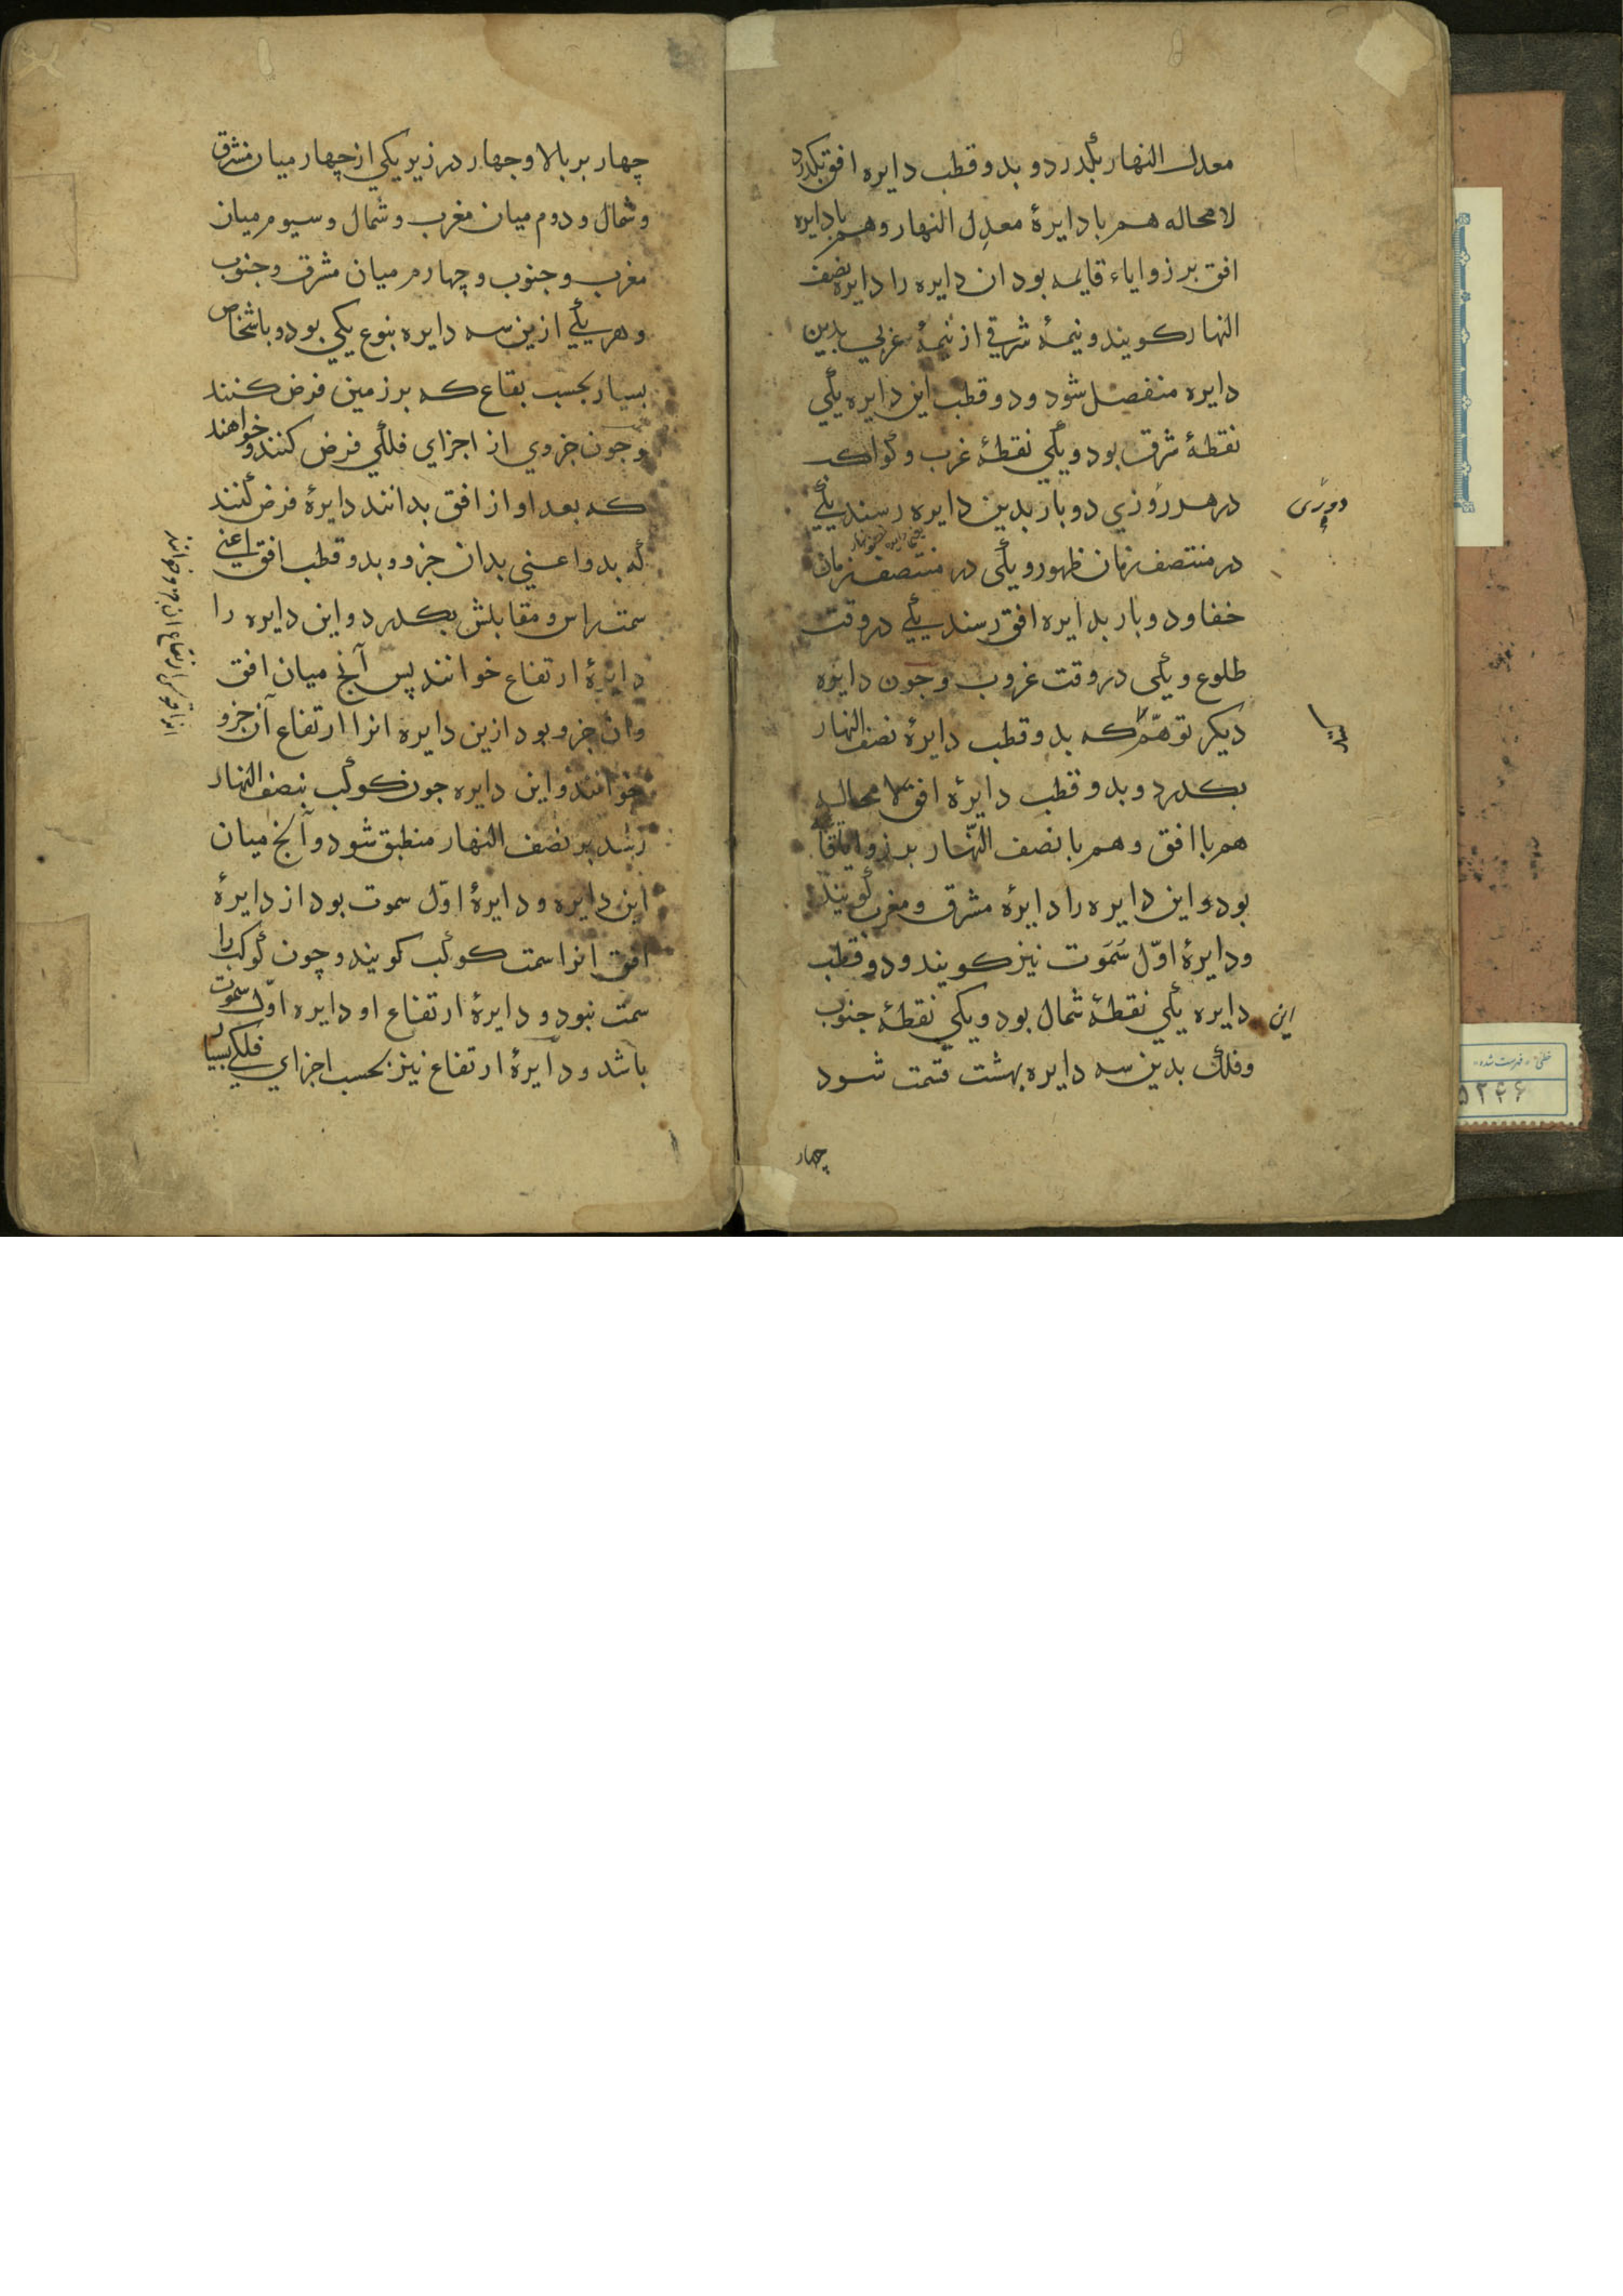 معدل النهار بکذرد و بدو قطب دایره افق بکذرد
لامحاله هم با دایرهٔ معدِل النهار و هم با دایره
افق بر زوایاء قایمه بود ان دایره را دایره نصف
النهار کویند و نیمهٔ شرقی از نیمهٔ غربی بدین
دایره منفصل شود و دو قطب این دایره یکی
نقطهٔ شرق بود و یکی نقطهٔ غرب و کواکب
در هر روزی دو بار بدین دایره رسند یکی
در منتصف زمان ظهور و یکی در منتصف زمان
خفا و دو بار بدایره افق رسند یکی در وقت
طلوع و یکی در وقت غروب و جون دایره
دیکر توهّم که بدو قطب دایرهٔ نصف النهار
بکذرد و بدو قطب دایرهٔ افق لا محاله
هم با افق و هم با نصف النّهار بر زوایا
بود و این دایره را دایرهٔ مشرق و مغرب کویند
و دایرهٔ اوّل سَمَوت نیز کویند و دو قطب
این دایره یکی نقطهٔ شمال بود و یکی نقطهٔ جنوب
و فلک بدین سه دایره بهشت قسمت شود
چهار
چهار بر بالا و جهار در زیر یکی از چهار میان مشرق
و شمال و دوم میان مغرب و شمال و سیوم میان
مغرب و جنوب و چهارم میان مشرق و جنوب
و هر یکی ازین سه دایره بنوع یکی بود و باشخاص
بسیار بحسب بقاع که بر زمین فرض کنند
و جون جزوی از اجزای فلکی فرض کنند و خواهند
که بعد او از افق بدانند دایرهٔ فرض کنند
که بدو اعنی بدان جزو و بدو قطب افق اعنی
سمت راس و مقابلش بکذرد و این دایره را
دایرهٔ ارتفاع خوانند پس آنج میان افق
و ان جزو بود ازین دایره انرا ارتفاع آن جزو
خوانند و این دایره جون کوکب بنصف النهار
رسد بر نصف النهار منطبق شود و آنج میان
این دایره و دایرهٔ اوّل سموت بود از دایرهٔ
افق انرا سمت کوکب کویند و چون کوکب را
سمت نبود و دایرهٔ ارتفاع او دایره اوّل سموت
باشد و دایرهٔ ارتفاع نیز بحسب اجزای فلکی بسیار
۵۲۴۶